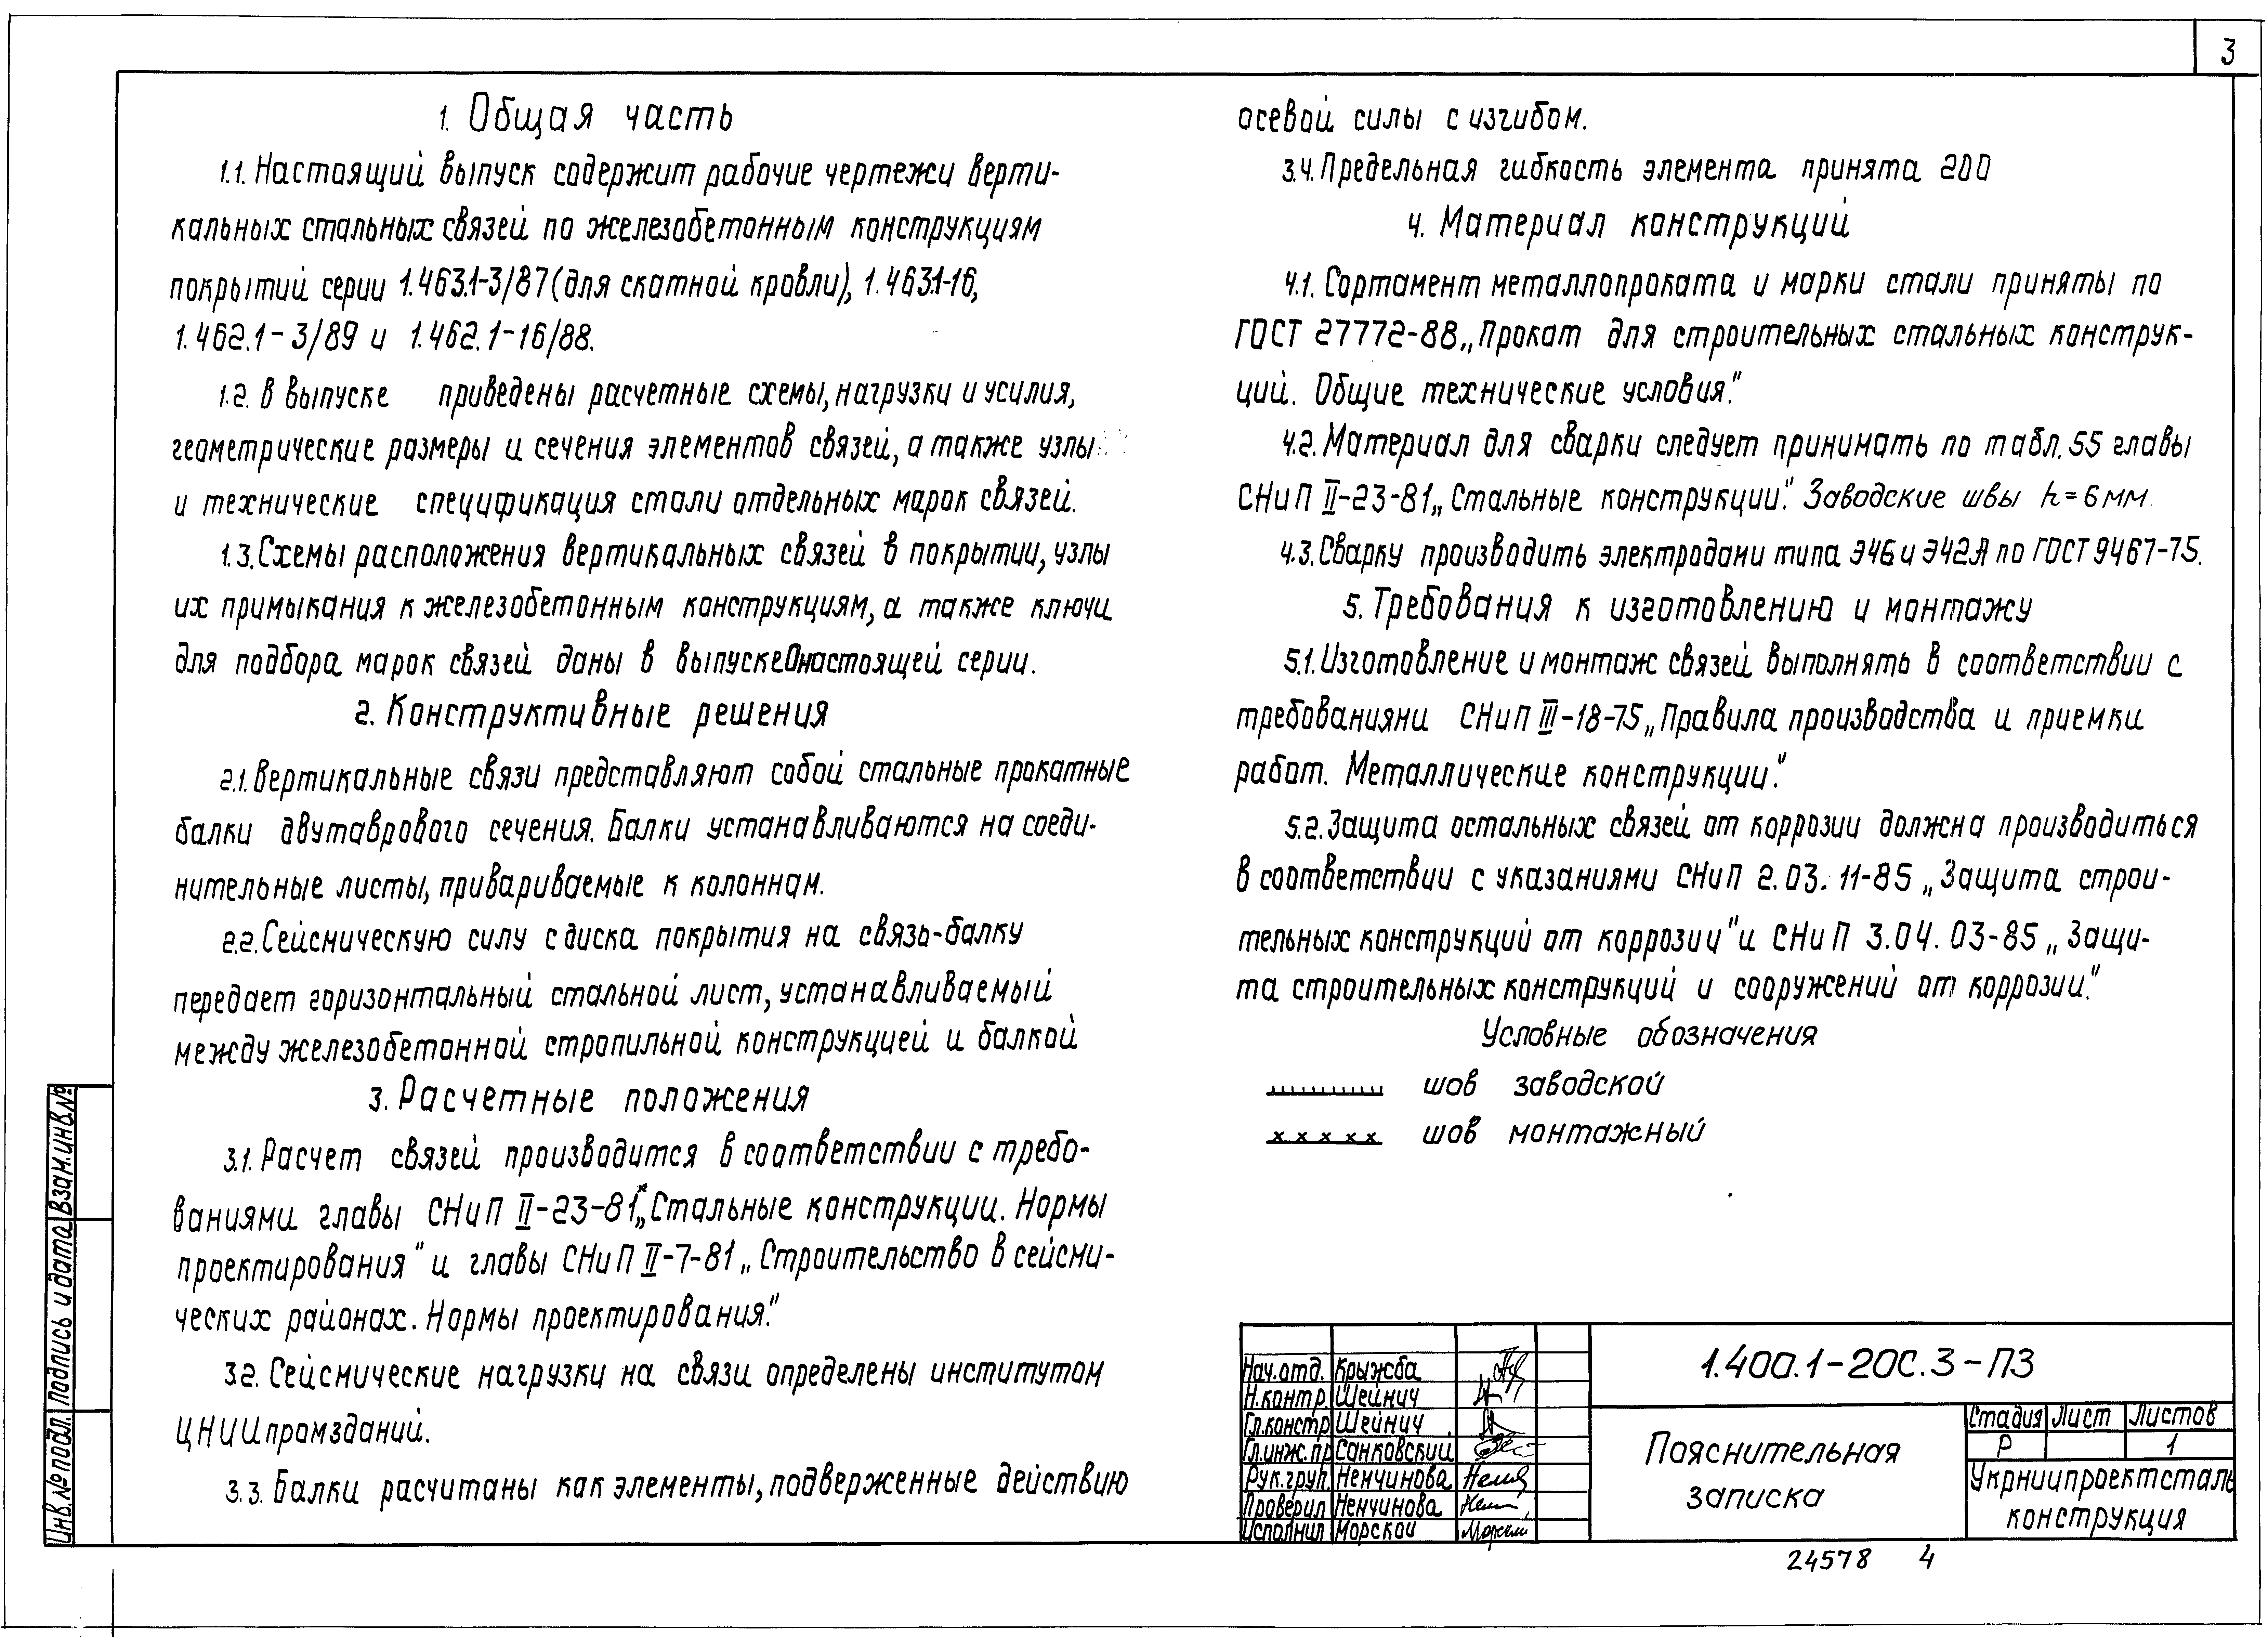 3
1. Общая часть
1.1. Настоящий выпуск содержит рабочие чертежи верти-
кальных стальных связей по железобетонным конструкциям
покрытий серии 1.463.1-3/87 (для скатной кровли), 1.463.1-16,
1.462.1-3/89 и 1.462.1-16/88.
1.2. В выпуске приведены расчетные схемы, нагрузки и усилия,
геометрические размеры и сечения элементов связей, а также узлы
и технические спецификация стали отдельных марок связей.
1.3. Схемы расположения вертикальных связей в покрытии, узлы
их примыкания к железобетонным конструкциям, а также ключи
для подбора марок связей даны в выпуске 0 настоящей серии.
2. Конструктивные решения
2.1. Вертикальные связи представляют собой стальные прокатные
балки двутаврового сечения. Балки устанавливаются на соеди-
нительные листы, привариваемые к колоннам.
2.2. Сейсмическую силу с диска покрытия на связь-балку
передает горизонтальный стальной лист, устанавливаемый
между железобетонной стропильной конструкцией и балкой
3. Расчетные положения
3.1. Расчет связей производится в соответствии с требо-
ваниями главы СНиП II-23-81* „Стальные конструкции. Нормы
проектирования" и главы СНиП II-7-81 „Строительство в сейсми-
ческих районах. Нормы проектирования."
3.2. Сейсмические нагрузки на связи определены институтом
ЦНИИпромзданий.
3.3. Балки расчитаны как элементы, подверженные действию
осевой силы с изгибом.
3.4. Предельная гибкость элемента принята 200
4. Материал конструкций
4.1. Сортамент металлопроката и марки стали приняты по
ГОСТ 27772-88 „Прокат для строительных стальных конструк-
ций. Общие технические условия."
4.2. Материал для сварки следует принимать по табл. 55 главы
СНиП II-23-81 „Стальные конструкции". Заводские швы h=6мм.
4.3. Сварку производить электродами типа Э46 и Э42А по ГОСТ 9467-75.
5. Требования к изготовлению и монтажу
5.1. Изготовление и монтаж связей выполнять в соответствии с
требованиями СНиП III-18-75 „Правила производства и приемки
работ. Металлические конструкции."
5.2. Защита остальных связей от коррозии должна производиться
в соответствии с указаниями СНиП 2.03.11-85 „Защита строи-
тельных конструкций от коррозии" и СНиП 3.04.03-85 „Защи-
та строительных конструкций и сооружений от коррозии."
Условные обозначения
шов заводской
шов монтажный
Инв.№ подл. Подпись и дата Взам.инв.№
Нач.отд. Крыжба
Н.контр. Шейнич
Гл.констр Шейнич
Гл.инж.пр Санковский
Рук.груп. Немчинова
Проверил Немчинова
Исполнил Морской
1.400.1-20С.3-ПЗ
Пояснительная
записка
Стадия Лист Листов
Р 1
Укрниипроектсталь
конструкция
24578 4